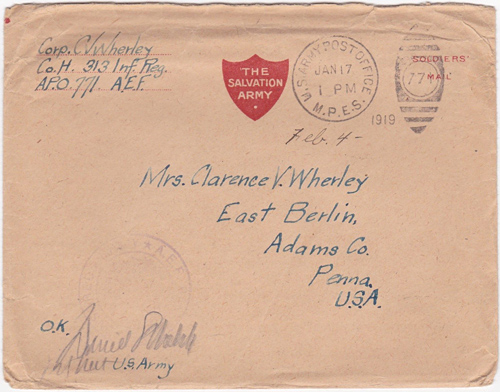 Corp. C.V. Wherley
Co. H. 313 Inf. Reg.
A.P.O. 771. A.E.F.
THE
SALVATION
ARMY
U.S. ARMY POST OFFICE
JAN 17
1 PM
M.P.E.S.
1919
SOLDIERS'
MAIL
77
Feb. 4-
Mrs. Clarence V. Wherley
East Berlin,
Adams Co.
Penna.
U.S.A.
A.E.F.
O.K.
Daniel
1st Lieut U.S. Army